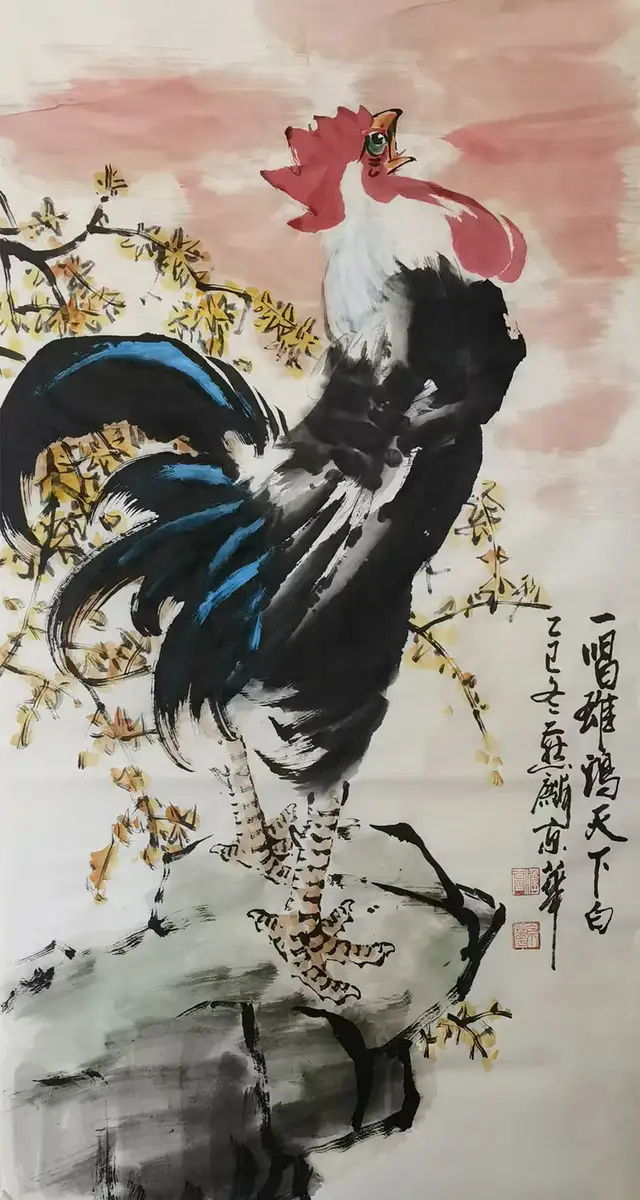 一唱雄鸡天下白
乙巳冬 燕麟京華